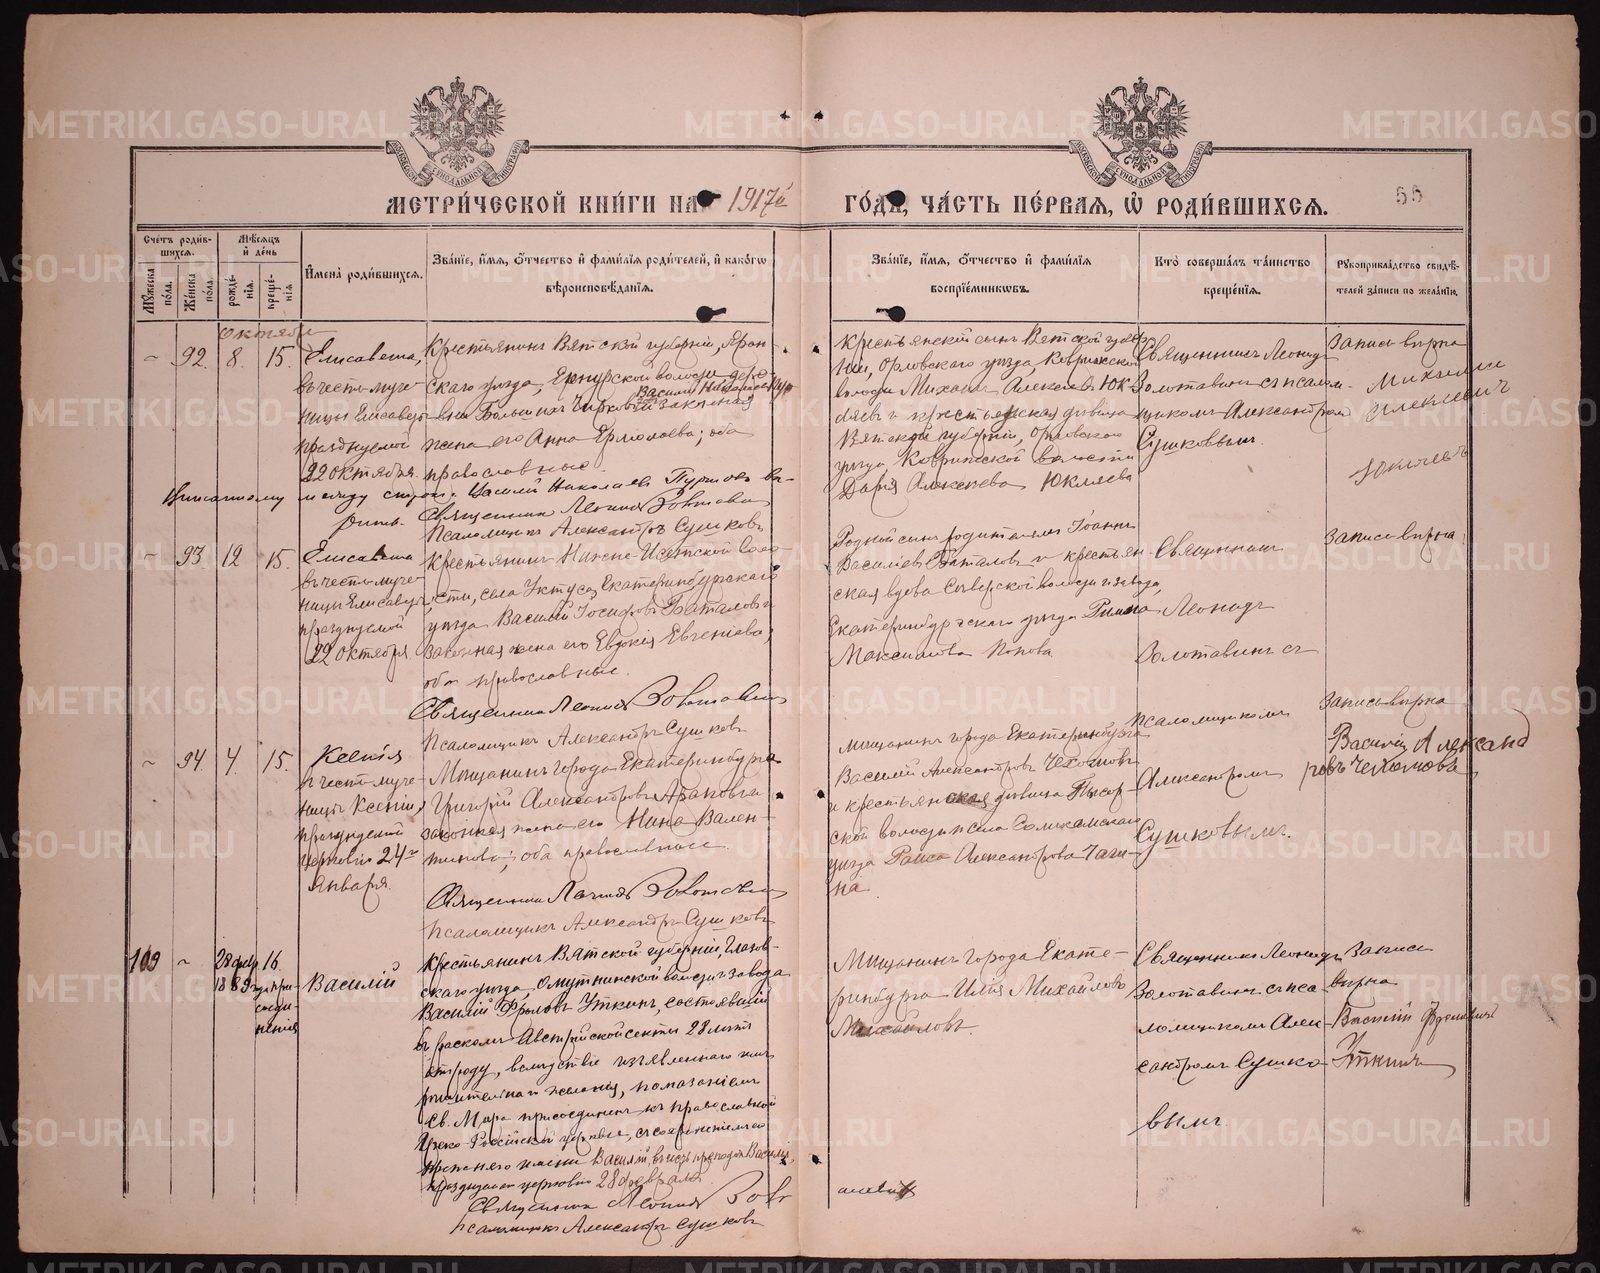 МЕТРИ́ЧЕСКОЙ КНИ́ГИ НА 1917й ГО́ДЪ, ЧА́СТЬ ПЕ́РВАЯ, Ѽ РОДИ́ВШИХСЯ.
55
Счетъ роди́вшихся.
Мꙋжеска по́ла.
Же́нска по́ла.
Мѣ́сяцъ и де́нь
рожде́нїѧ.
креще́нїѧ.
Имена̀ роди́вшихсѧ.
Зва́нїе, и́мѧ, ѻ҆́тчество и фами́лїѧ роди́телей, и како́гѡ
вѣроисповѣ́данїѧ.
Зва́нїе, и́мѧ, ѻ҆́тчество и фами́лїѧ
воспрїе́мникѡвъ.
Кто̀ соверша́лъ та́инство
креще́нїѧ.
Рꙋкоприкла́дство свидѣ́-
телей за́писи по жела́нїю.
Октября
~ 92. 8. 15.
Елисавета,
въ честь муче-
ницы Елисаветы
празднуемой
22 октября
Крестьянинъ Вятской губернiи, Яран-
скаго уѣзда, Ернурской волости дере-
вни Большихъ
Василiй Николаевъ
законная
жена его Анна Ермолаева; оба
православные.
между строкъ Василiй Николаевъ
Священникъ Леонидъ Золотавинъ
Псаломщикъ Александръ Сушковъ
Крестьянскiй сынъ Вятской губер-
нiи, Орловскаго уѣзда, Ковринской
волости Михаилъ Алексѣевъ Юк-
ляевъ и крестьянская дѣвица
Вятской губернiи, Орловскаго
уѣзда, Ковринской волости
Дарiя Алексѣева Юкляева
Священникъ Леонидъ
Золотавинъ съ псалом-
щикомъ Александромъ
Сушковымъ.
Запись вѣрна
Михаилъ
Алексѣевичъ
Юкляевъ
~ 93 12 15.
Елисавета
въ честь муче-
ницы Елисаветы
празднуемой
22 октября.
Крестьянинъ Нижне-Исетской воло-
сти, села Уктуса, Екатеринбургскаго
уѣзда Василiй Iосифовъ Баталовъ и
законная жена его Евдокiя Евгенiева;
оба православные.
Священникъ Леонидъ Золотавинъ
Псаломщикъ Александръ Сушковъ
Родной сынъ родителямъ Iоаннъ
Василiевъ Баталовъ и крестьян-
ская вдова Сысертской волости и завода,
Екатеринбургскаго уѣзда Римма
Максимова Попова
Священникъ
Леонидъ
Золотавинъ съ
псаломщикомъ
Александромъ
Сушковымъ.
Запись вѣрна
~ 94. 4. 15.
Ксенiя
въ честь муче-
ницы Ксенiи,
празднуемой
церковiю 24го
Января.
Мѣщанинъ города Екатеринбурга
Григорiй Александровъ Араповъ и
законная жена его Нина Вален-
тинова; оба православные.
Священникъ Леонидъ Золотавинъ
Псаломщикъ Александръ Сушковъ
Мѣщанинъ города Екатеринбурга
Василiй Александровъ Чехомовъ
и крестьянская дѣвица
ской волости и села Соликамскаго
уѣзда Раиса Александрова
на
Запись вѣрна
Василiй Александ
ровъ Чехомовъ
109 ~ 28 февр. 16.
1889 года при-
соеди-
ненiя
Василiй
Крестьянинъ Вятской губернiи, Глазов-
скаго уѣзда, Омутнинской волости и завода
Василiй Фроловъ Уткинъ, состоявшiй
въ расколѣ Австрiйской секты 28 лѣтъ
отроду, вслѣдствiе изъявленнаго имъ
рѣшительнаго желанiя, помазанiемъ
св. Мѵра присоединенъ къ православной
Греко-Россiйской церкви, съ сохраненiемъ
прежняго имени Василiй, въ честь преподоб. Василiя,
празднуемаго церковiю 28 февраля
Священникъ Леонидъ Золот
Псаломщикъ Александръ Сушковъ
Мѣщанинъ города Екате-
ринбурга Илiя Михайловъ
Михайловъ.
Священникъ Леонидъ
Золотавинъ съ пса-
ломщикомъ Алек-
сандромъ Сушко-
вымъ.
Запись
вѣрна
Василiй Фроловичъ
Уткинъ